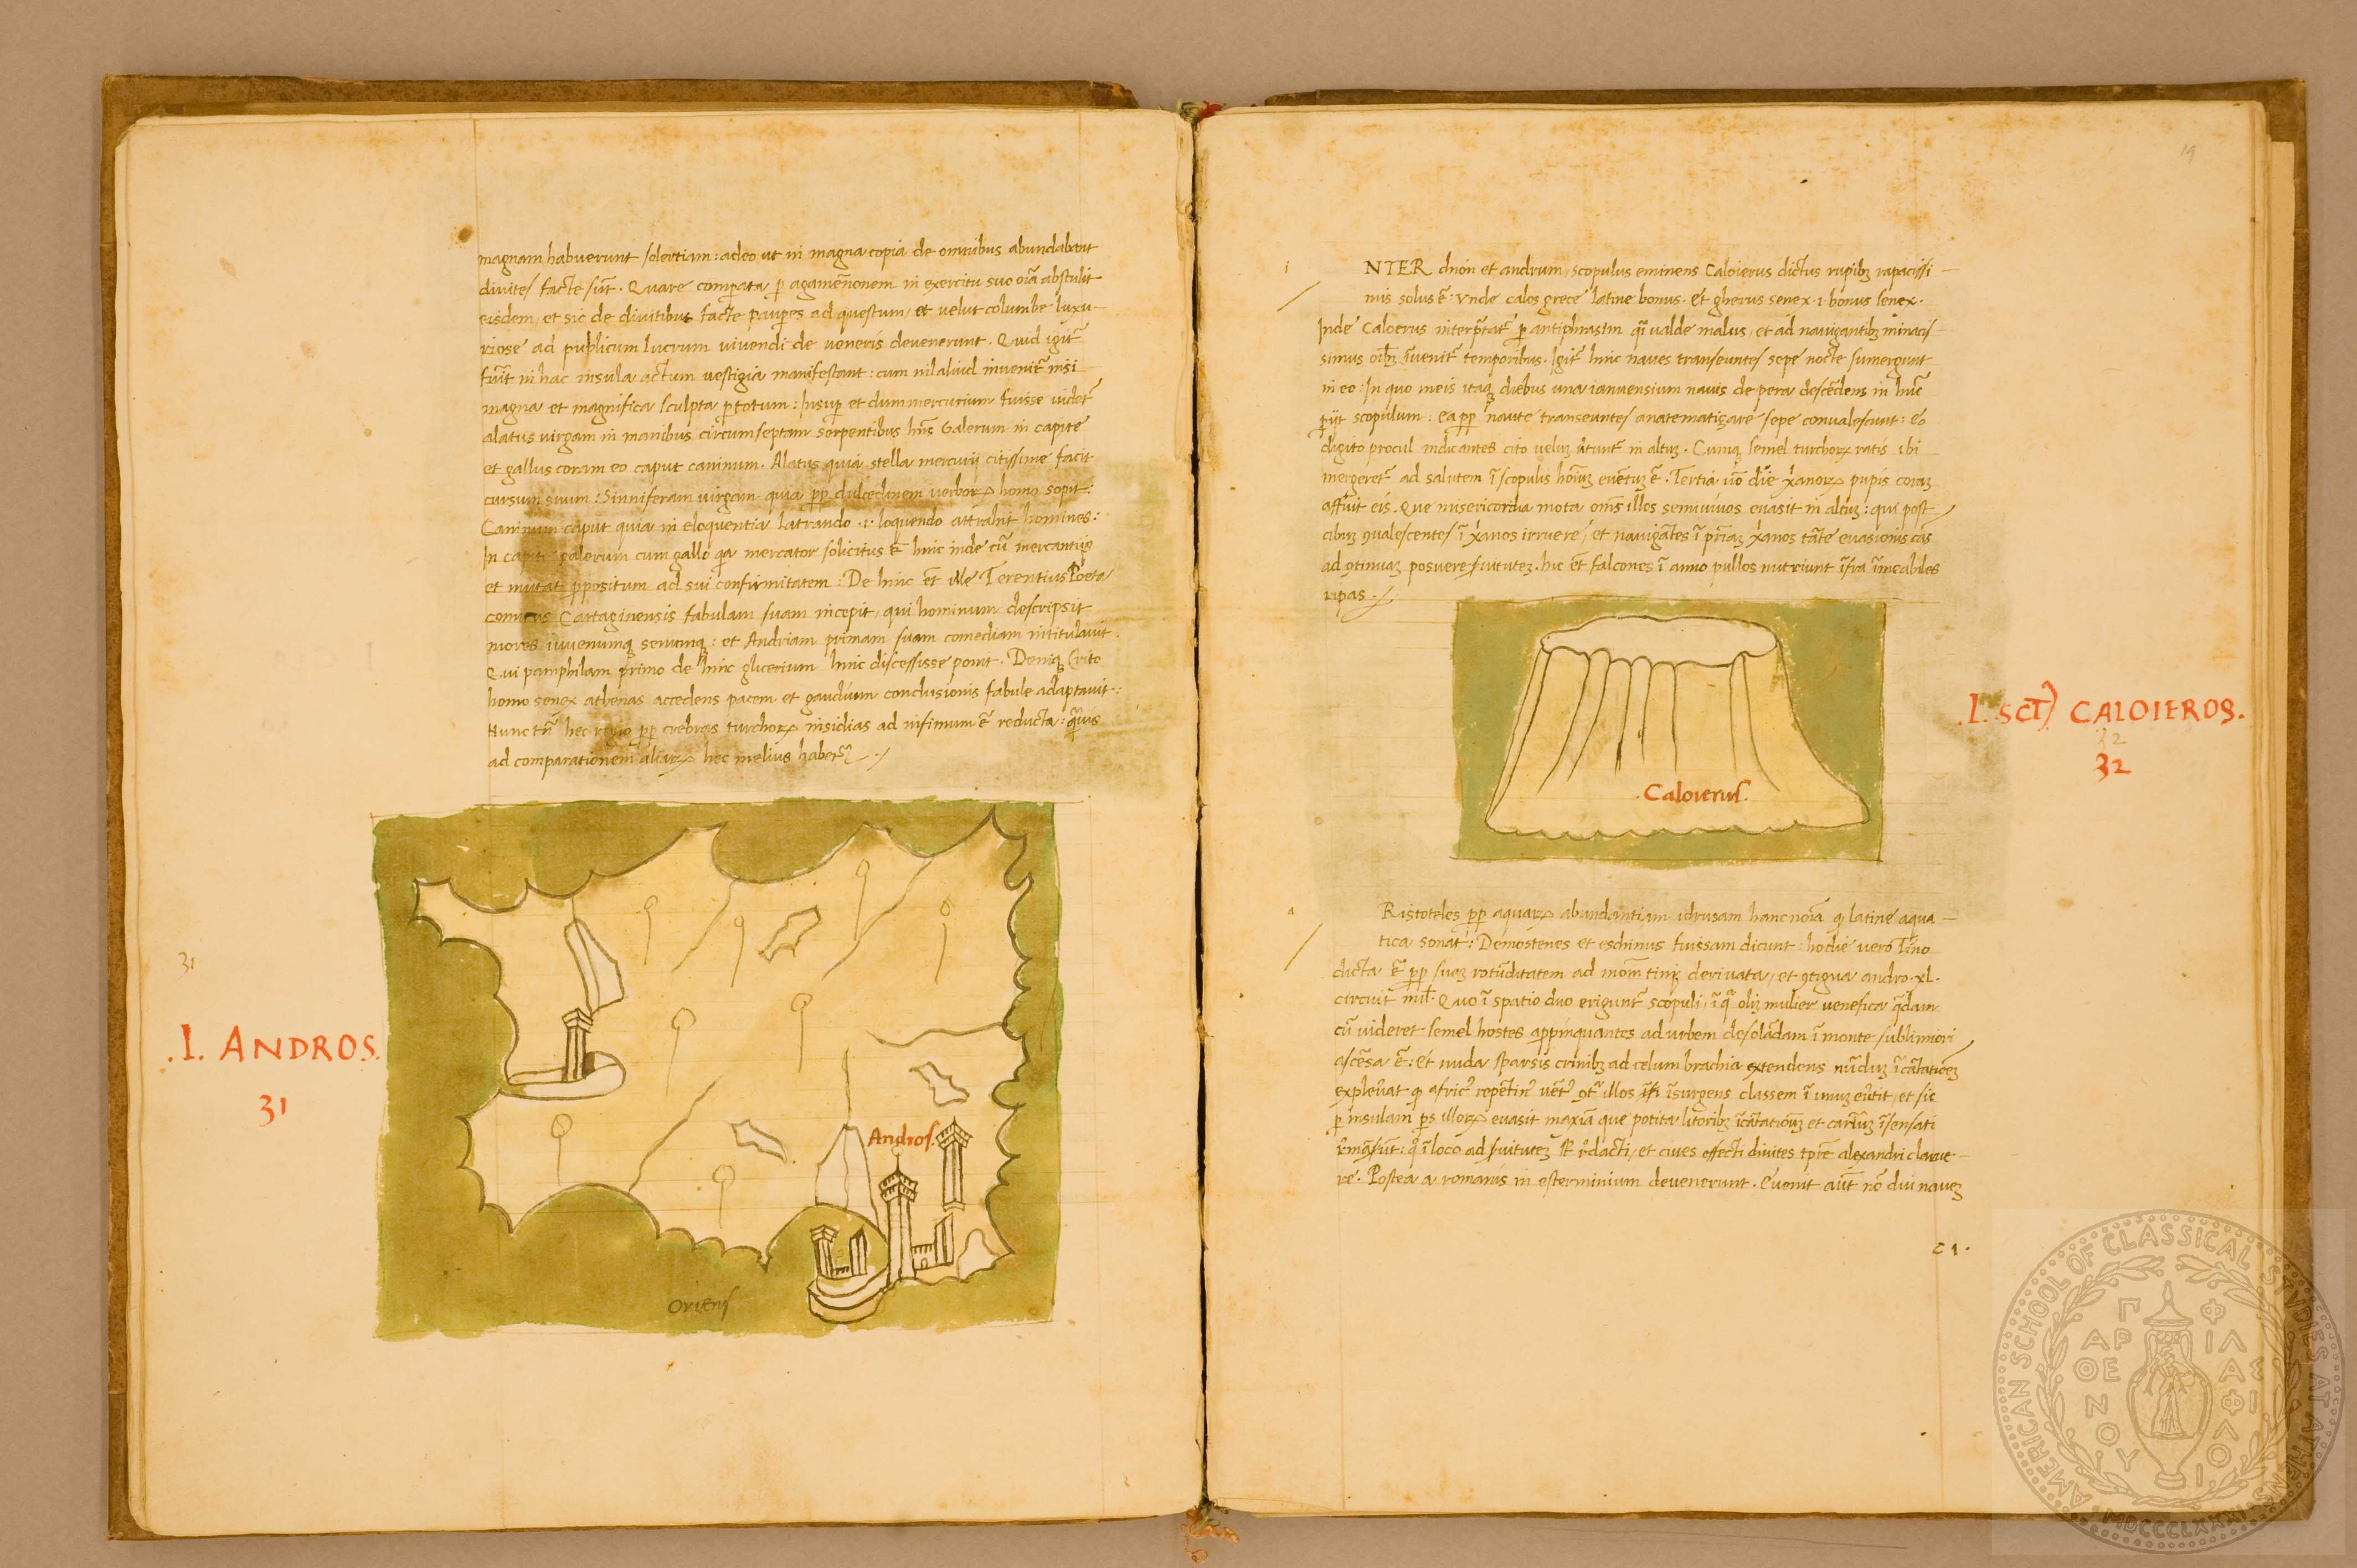 magnam habuerunt solertiam: adeo ut in magna copia de omnibus abundabant
divites facte sūt. Quare comparata p agamēnonem in exercitu suo oīa abstulit
eisdem, et sic de divitibus facte paupes ad questum, et velut columbe luxu-
riose ad publicum lucrum vivendi de veneris devenerunt. Quid igit̄
fuit in hac insula actum vestigia manifestant: cum nil aliud invenit̄ nisi
magna et magnifica sculpta p totum: Insup et dum mercurium fuisse videt̄
alatus virgam in manibus circumseptam serpentibus hn̄s Galerum in capite
et gallus coram eo caput caninum. Alatus quia stella mercurij citissime facit
cursum suum: Sinniferam virgam quia pp dulcedinem verborꝝ homo sopit:
Caninum caput quia in eloquentia latrando .i. loquendo attrahit homines:
In capite galerum cum gallo qa mercator solicitus ē hinc inde cū mercantijs
et mutat ppositum ad sui confirmitatem: De hinc et ille Terentius Poeta
comicus Cartaginensis fabulam suam incepit, qui hominum descripsit
mores iuvenumq senumq: et Andriam primam suam comediam intitulavit.
Qui pamphilam primo de hinc glicerium hinc discessisse ponit. Deniq Crito
homo senex athenas accedens pacem et gaudium conclusionis fabule adaptavit.:
Nunc tn̄ hec regio pp crebras turchorꝝ insidias ad infimum ē reducta: quīs
ad comparationem aliarꝝ hec melius habet
31
.I. ANDROS.
31
Andros.
Oriens
19
i
NTER dnon et andrum, scopulus eminens Caloierus dictus rupibꝫ rapacissi-
mis solus ē: Unde calos grece latine bonus. et gherus senex .i. bonus senex.
Inde Caloerus interptat̄ p antiphrasim qi valde malus, et ad navigantibꝫ minacis-
simus oībꝫ īvenit̄ temporibus. Igit̄ hinc naves transeuntes sepe nocte sumergunt
in eo: In quo meis itaq diebus una ianuensium navis de pera descēdens in hūc
pijt scopulum: ea pp naute transeuntes anatematigare sepe convalescunt: eo
digito procul indicantes cito veluꝫ in altuꝫ. Cumq semel turchorꝝ ratis ibi
mergeret̄ ad salutem ī scopulis hoīuꝫ evētuꝫ ē. Tertia die xanorꝝ pupis coraꝫ
affuit eis. Que misericordia mota oms̄ illos semivivos evasit in altuꝫ: qui post
cibuꝫ ꝯvalescentes ī xanos irruere, et navigātes ī pīaꝫ xanos tāte evasionis
ad ꝯtinuaꝫ posuere suitutez. hic et falcones ī anno pullos nutriunt īfra īmeabiles
ripas.
Caloierus.
.I. SCT) CALOIEROS.
32
32
a
Ristoteles pp aquarꝝ abundantiam idrusam hanc noīa q latine aqua-
tica sonat: Demostenes et eschinus fuissam dicunt: hodie vero Tino
dicta ē pp suaꝫ rotūditatem ad derivata, et ꝯtigua andro .xl.
circuit mil. Quo ī spatio duo erigunt̄ scopuli, ī q oliꝫ mulier venefica qdam
cū videret semel hostes appinquantes ad urbem desolādam ī monte sublimiori
ascēsa ē: et nuda sparsis crinibꝫ ad celum brachia extendens īcātationeꝫ
explerat q afric repētin vēt illos īsurgens classem ī imuꝫ, et sic
p insulam ps illorꝝ evasit maxia que potita litoribꝫ īcātationuꝫ et īsensati
ī loco ad suitutez redacti, et cives effecti divites tpre alexandri clarue-
re. Postea a romanis in esterminium devenerunt. Evenit aut̄ nō diu naveꝫ
C 1.
AMERICAN SCHOOL OF CLASSICAL STUDIES AT ATHENS
MDCCCLXXXI
ΠΑΡΘΕΝΟΥ ΦΙΛΑΣ ΦΙΛΟΙ